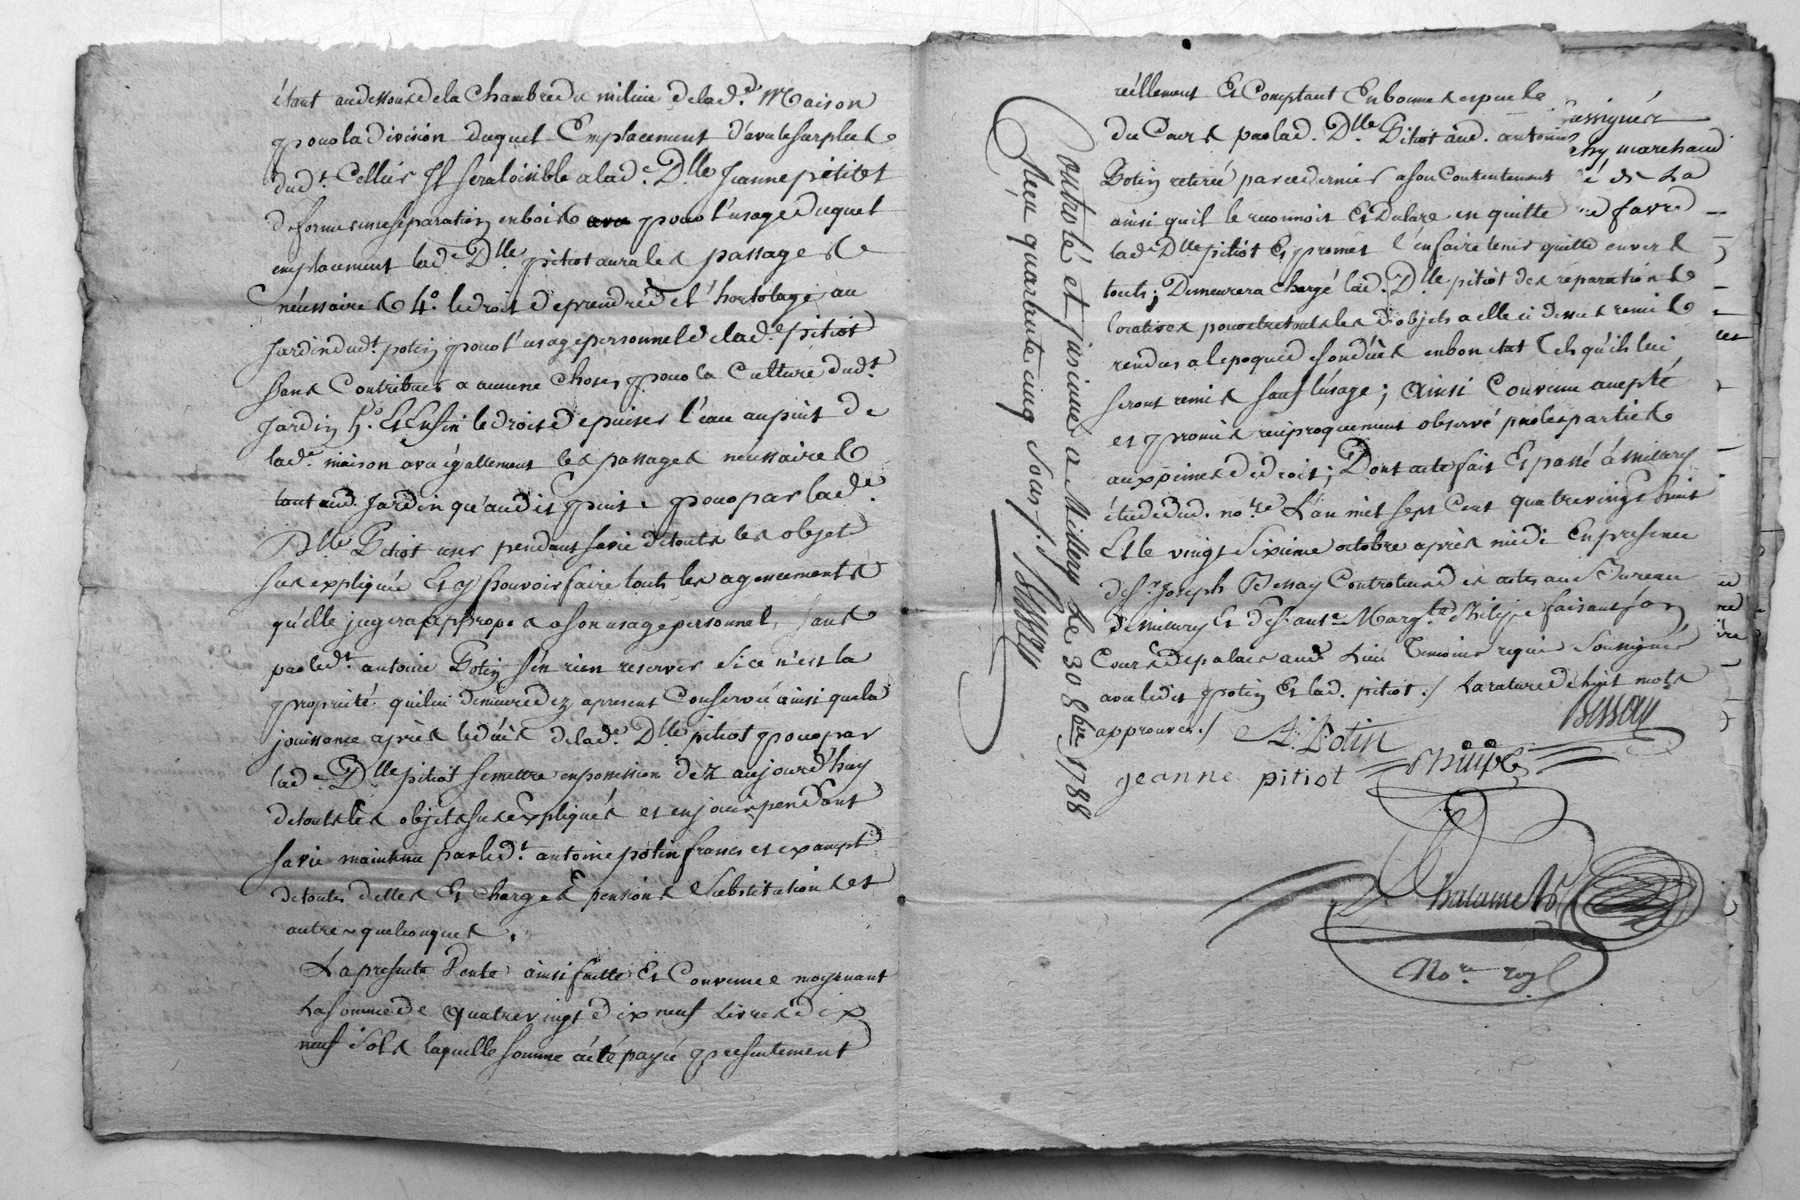 étant au dessous de la Chambre du milieu de lad.e Maison
pour la division duquel Emplacement d'avec le surplus
dud.t Cellier Il sera loisible a lad.e Dlle Jeanne pitiot
de former une séparation en bois pour l'usage duquel
emplacement lad.e Dlle pitiot aura les passages
nécessaires 4.o le droit de prendre de l'hortolage au
Jardin dud.t potin pour l'usage personnel de lad.e pitiot
sans Contribuer a aucune choses pour la Culture dud.t
Jardin 5.o Et Enfin le droit de puiser l'eau au puit de
lad.e maison avec également les passages nécessaires
tant aud. Jardin qu'audit puit pour par lad.e
Dlle Pitiot user pendant sa vie de touts les objet
sus expliqués Et y pouvoir faire touts les agencements
qu'elle jugera appropos a son usage personnel, sans
par led.t antoine Potin s'en rien reserver si ce n'est la
propriété qui lui demeure dez apresent Conservée ainsi que la
jouissance après le décès de lad.e Dlle pitiot pour par
lad.e Dlle pitiot se mettre en possession dèz aujourd'huy
de touts les objets sus expliqués et en jouir pendant
sa vie maintenue par led.t antoine potin francs et exempts
de toutes dettes Et charges pensions substitutions et
autres quelconques.
La presente Vente ainsi faitte Et Convenue moyenant
La somme de quatre vingt dix neuf Livres dix
neuf sols laquelle somme a été payée presentement
réellement Et Comptant En bonnes especes
du Cours par lad. Dlle Pitiot aud. antoine
Potin retirée par ce dernier a son Contentement
ainsi qu'il le reconnoit Et Declare en quitte
lad.e Dlle pitiot Et promet l'en faire tenir quitte envers
touts; Demeurera chargé lad. Dlle pitiot des réparations
locatives pour etre touts les objets a elle ci dessus remis
rendus a l'epoque de son décès en bon etat tels qu'ils lui
seront remis sauf l'usage; Ainsi Convenu accepté
et promis reciproquement observé par les parties
aux peines de droit; Dont acte fait Et passé à millery
étude dud. no.re L'an mil sept Cent quatre vingt huit
Et le vingt sixieme octobre après midi En presence
de s.r Joseph Bessay Controleur des actes au Bureau
de millery Et de s.r ant.e Marg.te Philipe faisant
Cours de palais aud. Lieu Temoins requis Soussignés
avec ledit potin Et lad. pitiot ./. La rature de huit mots
approuvée ./.
A: Potin
Bessay
jeanne pitiot
Philipe
No.re roy.l
Controlé et insinué a Millery le 30 8bre 1788
Reçu quarante cinq sous ./. Bessay
marchand